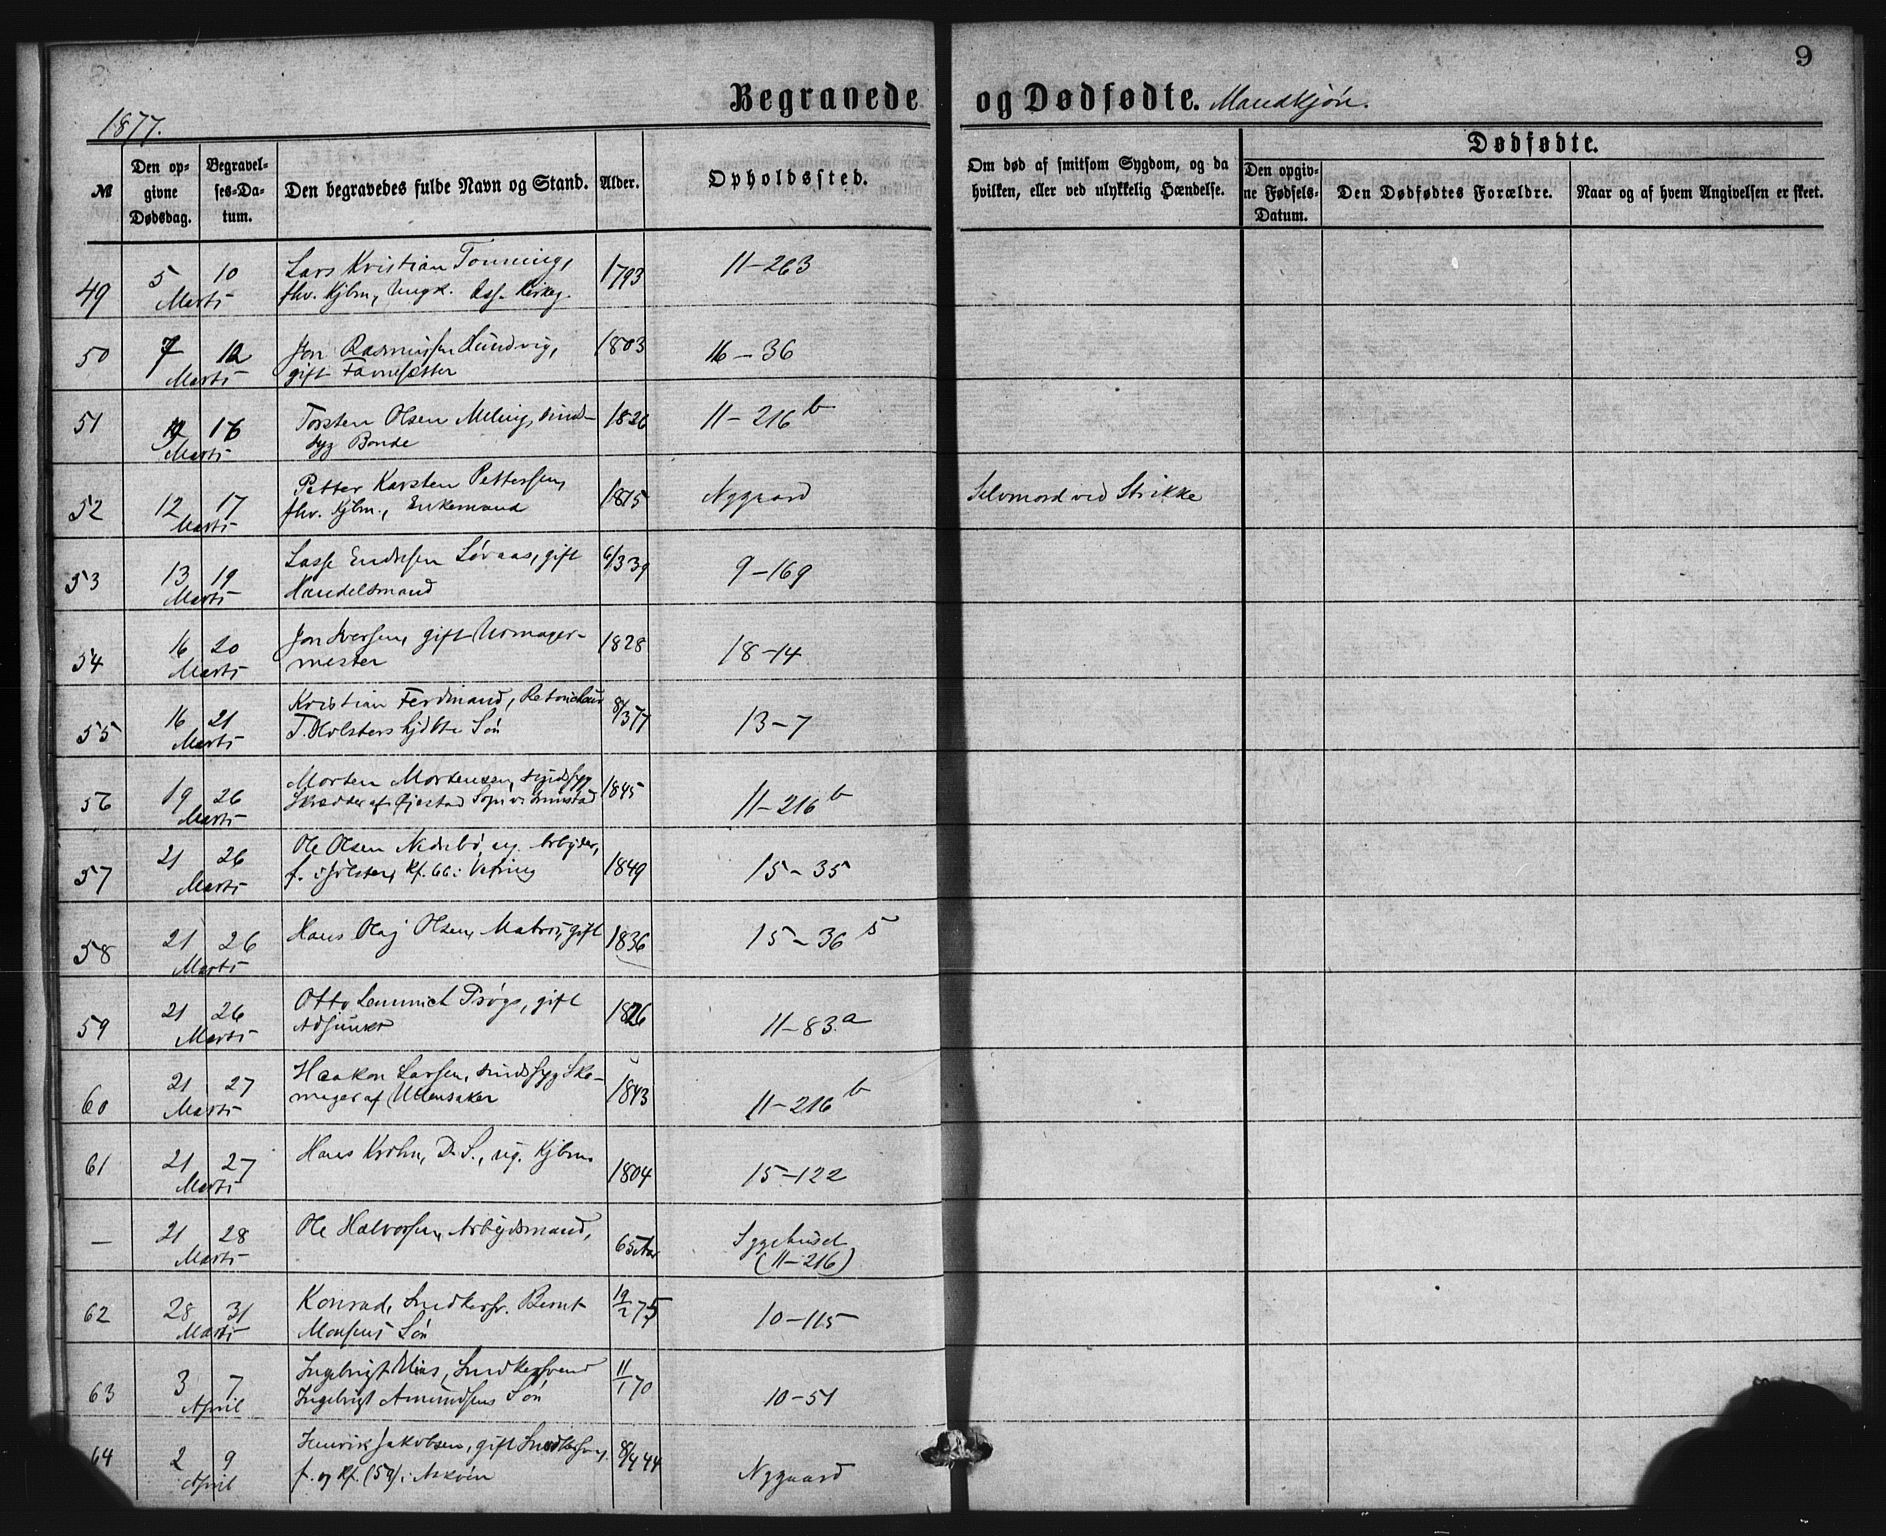 9
Begravede og Dødfødte. Mandkjøn.
1877.
№
Den opgivne Dødsdag.
Begravelses-Datum.
Den begravedes fulde Navn og Stand.
Alder.
Opholdssted.
Om død af smitsom Sygdom, og da hvilken, eller ved ulykkelig Hændelse.
Dødfødte.
Den opgivne Fødsels-Datum.
Den Dødfødtes Forældre.
Naar og af hvem Angivelsen er skeet.
49 5 10 Lars Kristian Tonning, 1793 11-263
Marts fhv. Kjbm, Ungk.
50 7 12 Jon Rasmussen Sundvig, 1803 16-36
Marts gift Favnesætter
51 16 Torsten Olsen Meling, sind- 1826 11-216b
Marts syg Bonde
52 12 17 Petter Karsten Pettersen, 1815 Nygaard Selvmord ved Strikke
Marts fhv. Kjbm., Enkemand
53 13 19 Lasse Endresen Søraas, gift 6/3 39 9-169
Marts Handelsmand
54 16 20 Jon Iversen, gift Urmager- 1828 18-14
Marts mester
55 16 21 Kristian Ferdinand, 8/3 77 13-7
Marts T. Holsters Søn
56 19 26 Morten Mortensen, sindssyg 1845 11-216b
Marts Skrædder af Øiestad
57 21 26 Ole Olsen Nedrebø, ug. Arbeider, 1849 15-35
Marts f. i Jølster, Kf. 66 i
58 21 26 Hans Olaj Olsen, Matros, gift 1836 15-36 5
Marts
59 21 26 Otto Lemmich gift 1826 11-83.a
Marts Adjunkt
60 21 27 Haakon Larsen, sindssyg Sko- 1843 11-216b
Marts mager af Ullensaker
61 21 27 Hans Krohn, D. S., ug. Kjbm. 1804 15-122
Marts
— 21 28 Ole Halvorsen, Arbejdsmand, 65 Aar Sygehuset
Marts (11-216)
62 28 31 Konrad, Snedkersv. Bernt 19/2 75 10-115
Marts Monsens Søn
63 3 7 Ingebrigt Snedkersvend 11/1 70 10-51
April Ingebrigt Amundsens Søn
64 2 9 Henrik Jakobsen, gift Snedkersv. 8/4 44 Nygaard
April f. og Kf. (59) i Askøen